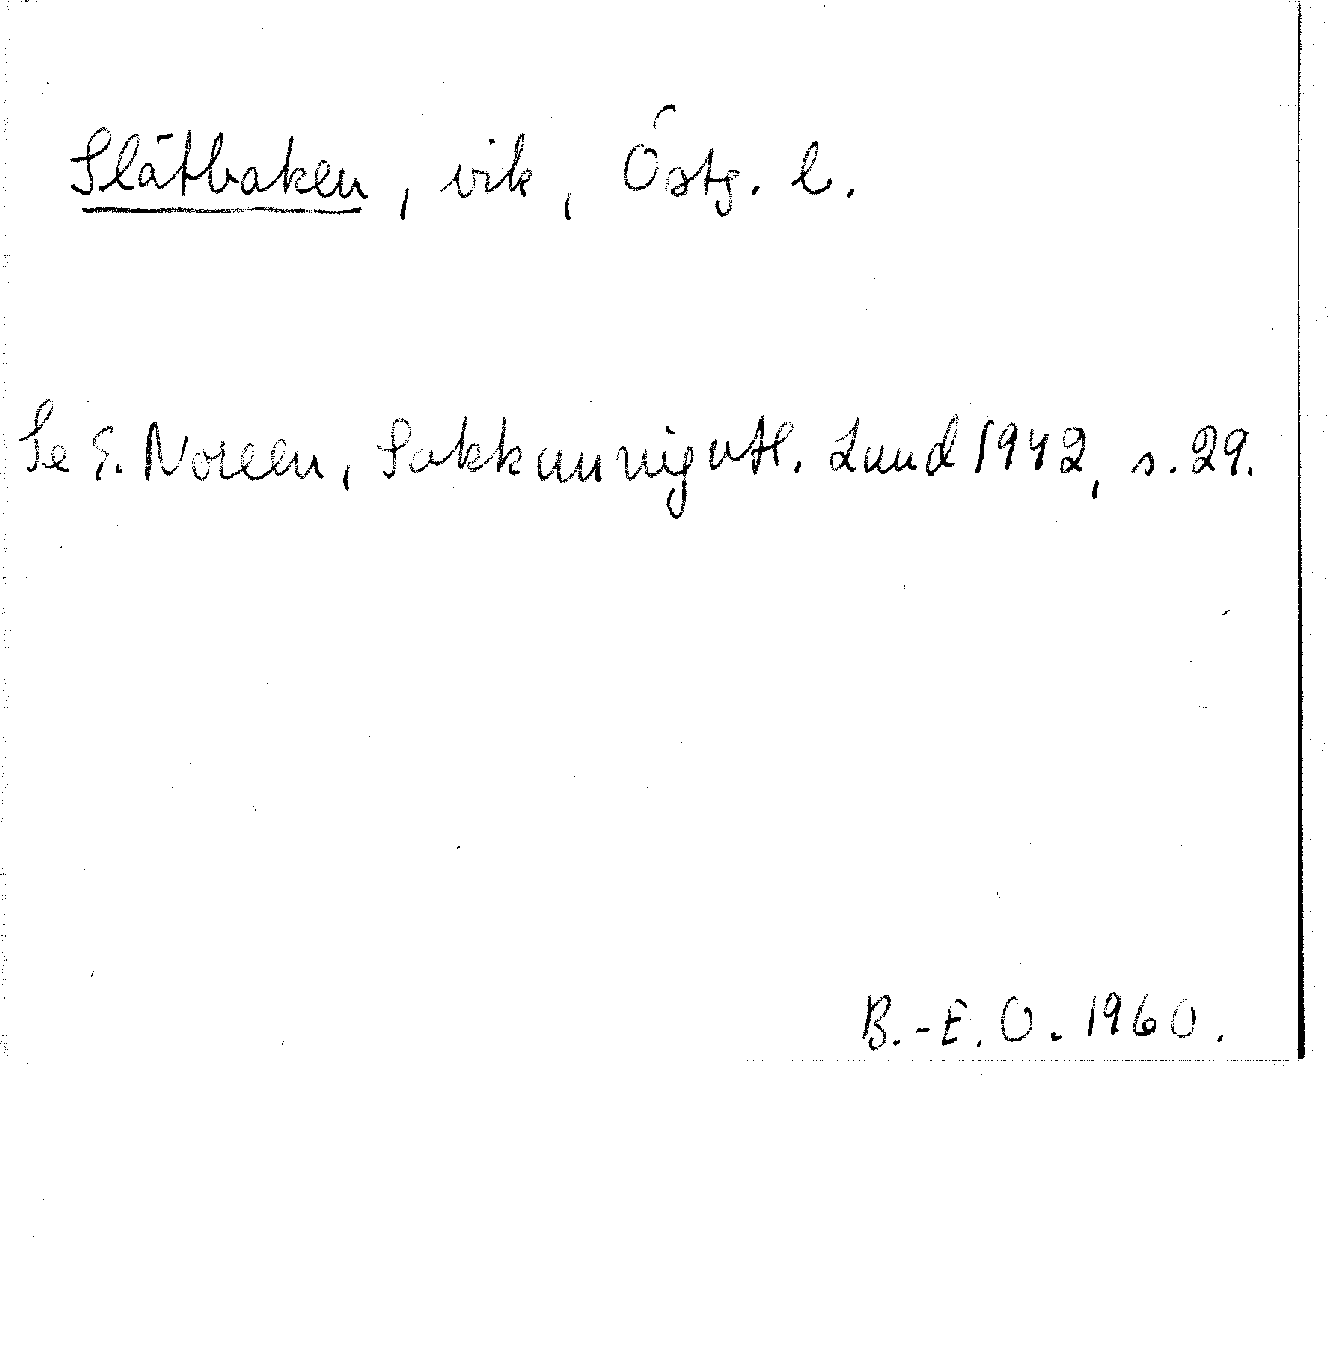 Slätbaken, vik, Östg. l.
Se E. Noreen, Sakkunnigutl. Lund 1942, s. 29.
B.-E. O. 1960.